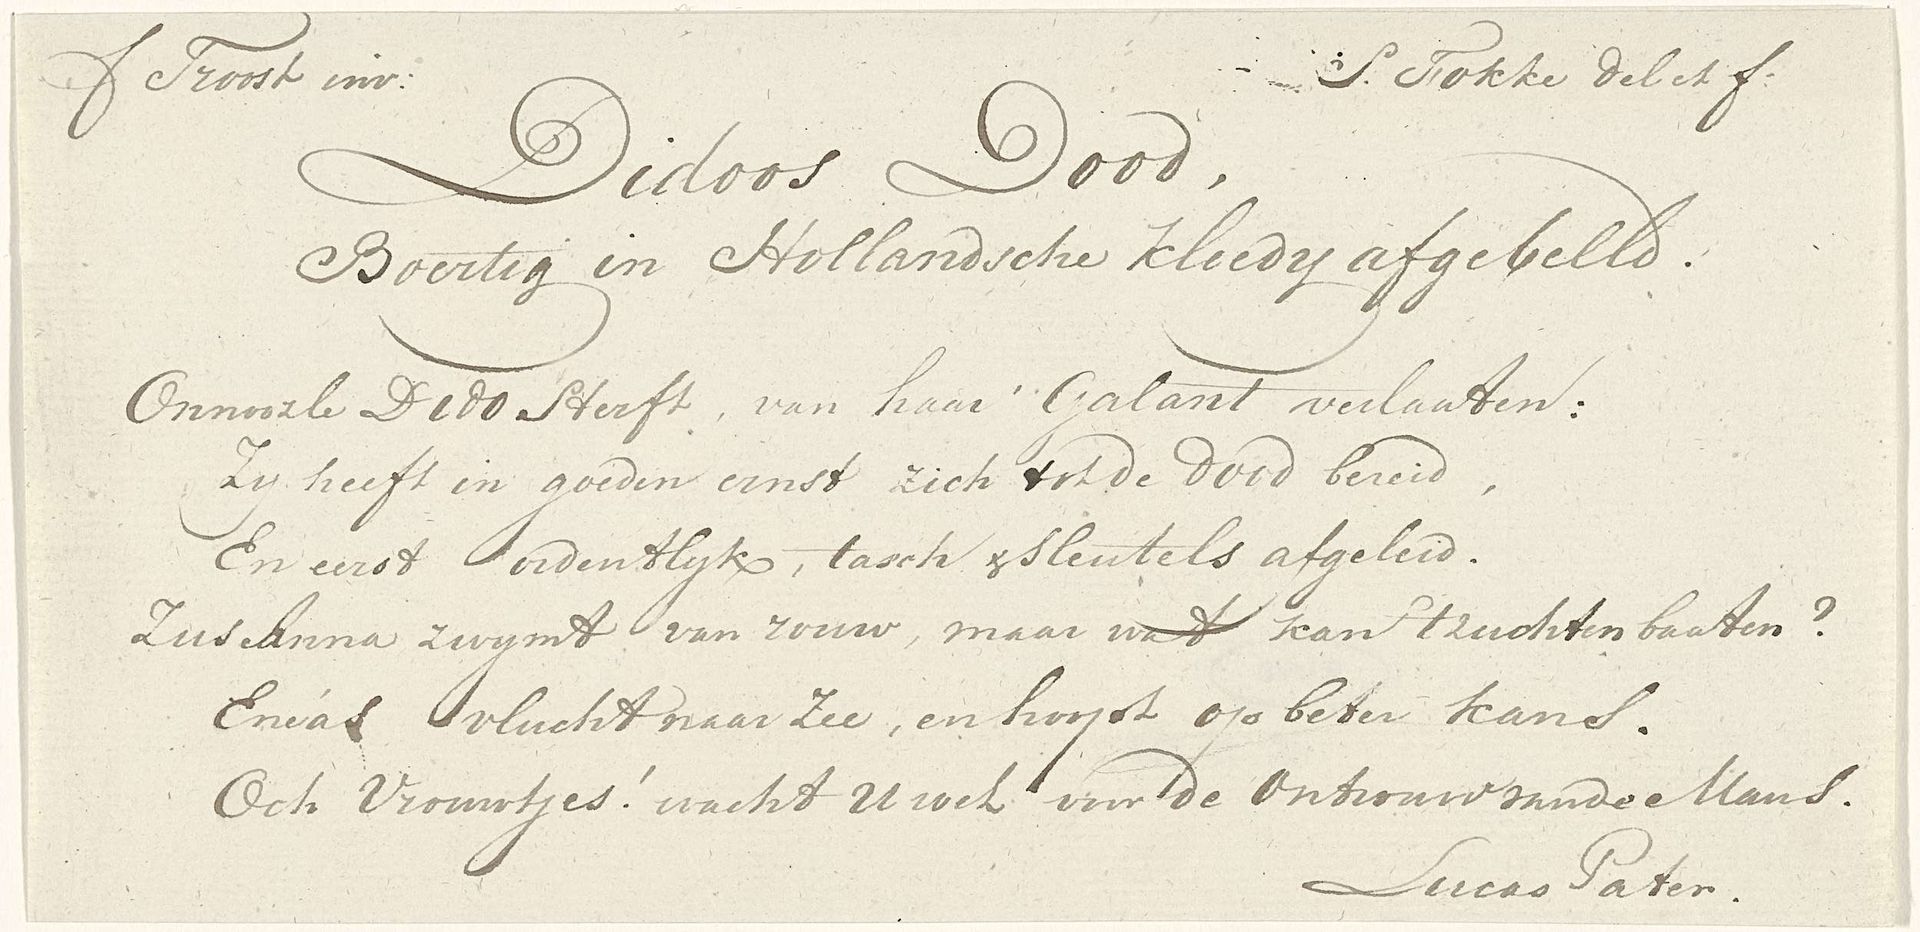 f Troost inv: S. Fokke del et f:
Didoos Dood,
Boertig in Hollandsche kleedy afgebelld.
Onnoozle Dido Sterft, van haar' Galant verlaaten:
Zy heeft in goeden ernst zich tot de dood bereid,
En eerst ordentlyk, tasch & Sleutels afgeleid.
Zus Anna zwymt van rouw, maar wat kan 't zuchten baaten?
Enéas vlucht naar Zee, en hoopt op beter kans.
Och Vrouwtjes! wacht U wel voor de Ontrouw van de Mans.
Lucas Pater.